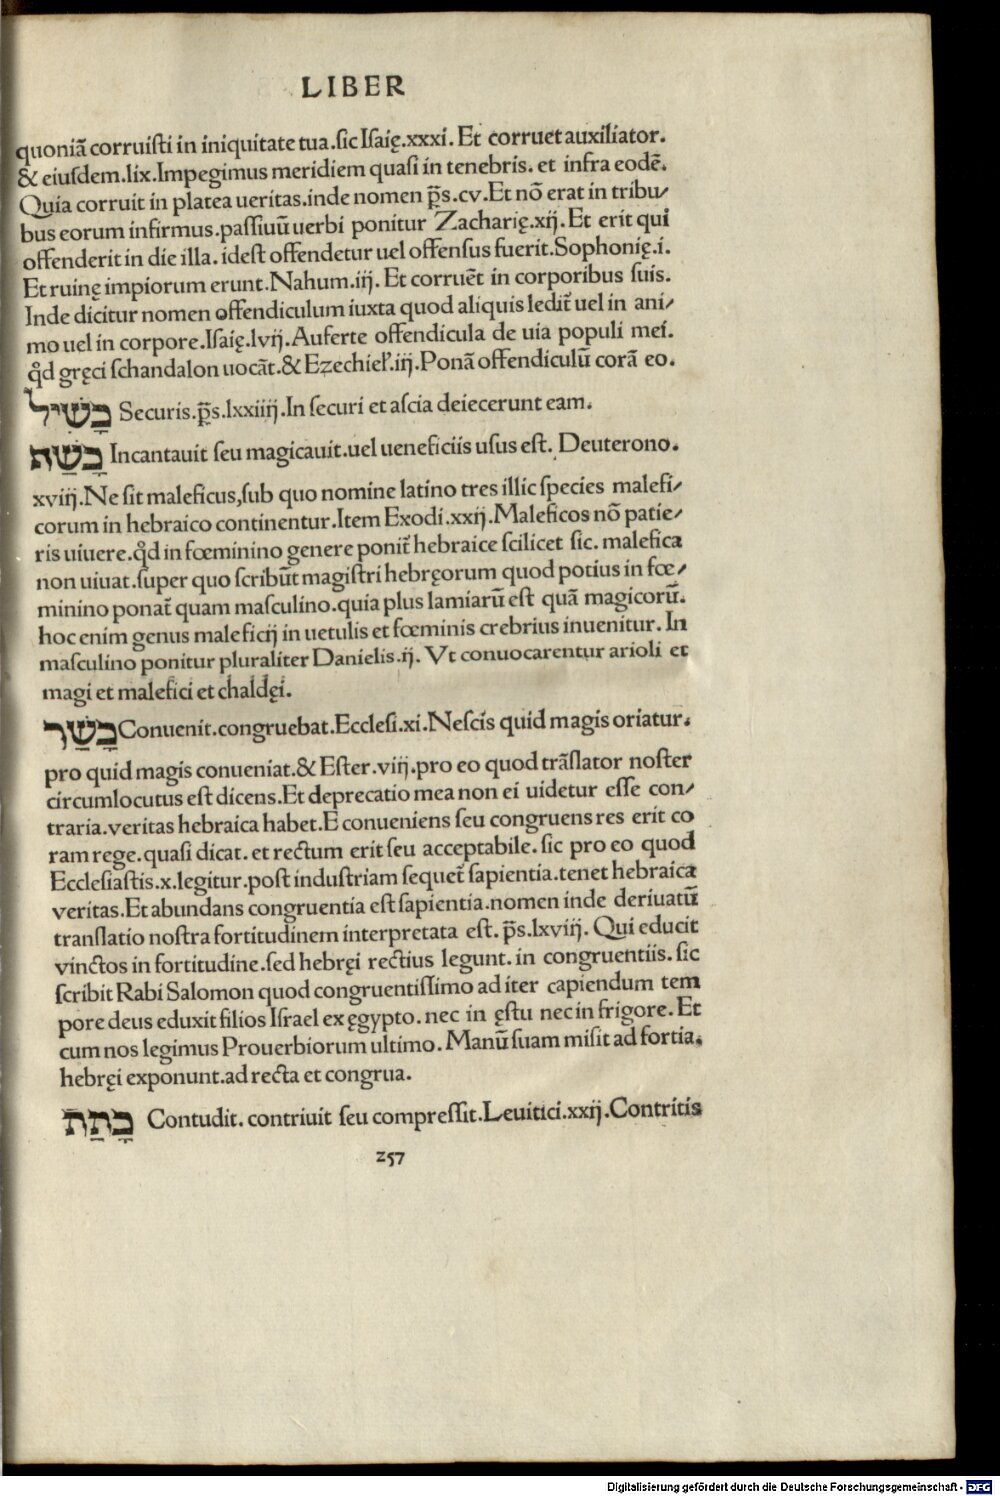 LIBER
quoniã corruiſti in iniquitate tua.ſic Iſaię.xxxi. Et corruet auxiliator.
& eiuſdem.lix.Impegimus meridiem quaſi in tenebris. et infra eodẽ.
Quia corruit in platea ueritas.inde nomen p̃s.cv.Et nõ erat in tribu⸗
bus eorum infirmus.paſſiuũ uerbi ponitur Zacharię.xij.Et erit qui
offenderit in die illa. ideſt offendetur uel offenſus fuerit.Sophonię.i.
Et ruinę impiorum erunt.Nahum.iij. Et corruẽt in corporibus ſuis.
Inde dicitur nomen offendiculum iuxta quod aliquis ledit̃ uel in ani⸗
mo uel in corpore.Iſaię.lvij.Auferte offendicula de uia populi mei.
q̊d gręci ſchandalon uocãt.& Ezechiel̓.iij.Ponã offendiculũ corã eo.
כָּשִׁיל Securis.p̃s.lxxiiij.In ſecuri et aſcia deiecerunt eam.
כָּשַׁף Incantauit ſeu magicauit.uel ueneficiis uſus eſt. Deuterono.
xviij.Ne ſit maleficus,ſub quo nomine latino tres illic ſpecies malefi⸗
corum in hebraico continentur.Item Exodi.xxij.Maleficos nõ patie⸗
ris uiuere.q̊d in fœminino genere ponit̃ hebraice ſcilicet ſic. malefica
non uiuat.ſuper quo ſcribũt magiſtri hebręorum quod potius in fœ⸗
minino ponat̃ quam maſculino.quia plus lamiarũ eſt quã magicorũ.
hoc enim genus maleficij in uetulis et fœminis crebrius inuenitur. In
maſculino ponitur pluraliter Danielis.ij. Vt conuocarentur arioli et
magi et malefici et chaldęi.
כָּשַׁר Conuenit.congruebat.Eccleſi.xi.Neſcis quid magis oriatur.
pro quid magis conueniat.& Eſter.viij.pro eo quod trãſlator noſter
circumlocutus eſt dicens.Et deprecatio mea non ei uidetur eſſe con⸗
traria.veritas hebraica habet.E conueniens ſeu congruens res erit co
ram rege.quaſi dicat. et rectum erit ſeu acceptabile. ſic pro eo quod
Eccleſiaſtis.x.legitur.poſt induſtriam ſequet̃ ſapientia.tenet hebraica
veritas.Et abundans congruentia eſt ſapientia.nomen inde deriuatũ
tranſlatio noſtra fortitudinem interpretata eſt. p̃s.lxviij. Qui educit
vinctos in fortitudine.ſed hebręi rectius legunt. in congruentiis. ſic
ſcribit Rabi Salomon quod congruentiſſimo ad iter capiendum tem
pore deus eduxit filios Iſrael ex ęgypto. nec in ęſtu nec in frigore. Et
cum nos legimus Prouerbiorum ultimo. Manũ ſuam miſit ad fortia.
hebręi exponunt.ad recta et congrua.
כָּתַת Contudit. contriuit ſeu compreſſit.Leuitici.xxij.Contritis
257
Digitalisierung gefördert durch die Deutsche Forschungsgemeinschaft - DFG